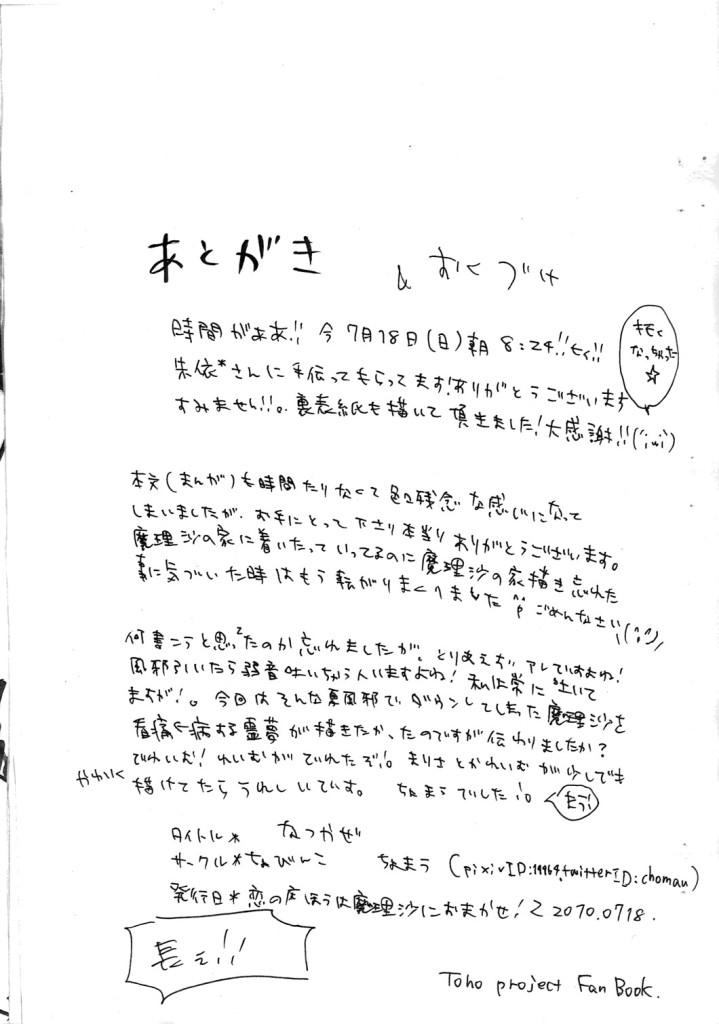 あとがき
& おくづけ
時間がぁあ!! 今 7月18日(日)朝 8:24!!
朱依*さんに手伝ってもらってます!ありがとうございます
すみません!!。裏表紙も描いて頂きました!大感謝!!(´;ω;`)
☆
本文(まんが)も時間たりなくて色々残念な感じになって
しまいましたが、お手にとって下さり本当にありがとうございます。
魔理沙の家に着いたっていってるのに魔理沙の家描き忘れた
事に気づいた時はもう転がりまくりました ごめんなさい
何書こうと思ってたのか忘れましたが、とりあえず、アレですよね!
風邪引いたら弱音吐いちゃう人いますよね! 私は常に吐いて
ますが!。今回はそんな夏風邪でダウンしてしまった魔理沙を
看病する霊夢が描きたかったのですが伝わりましたか?
でれいむ!れいむがでれたぞ!。まりさとかれいむが少しでも
かわいく描けてたらうれしいです。 ちょまうでした!。
タイトル* なつかぜ
サークル*ちょびんこ ちょまう (pixivID:19964,twitterID:chomau)
発行日* 恋の魔ほうは魔理沙におまかせ!2 2010.0718.
長ぇ!!
Toho project Fan Book.